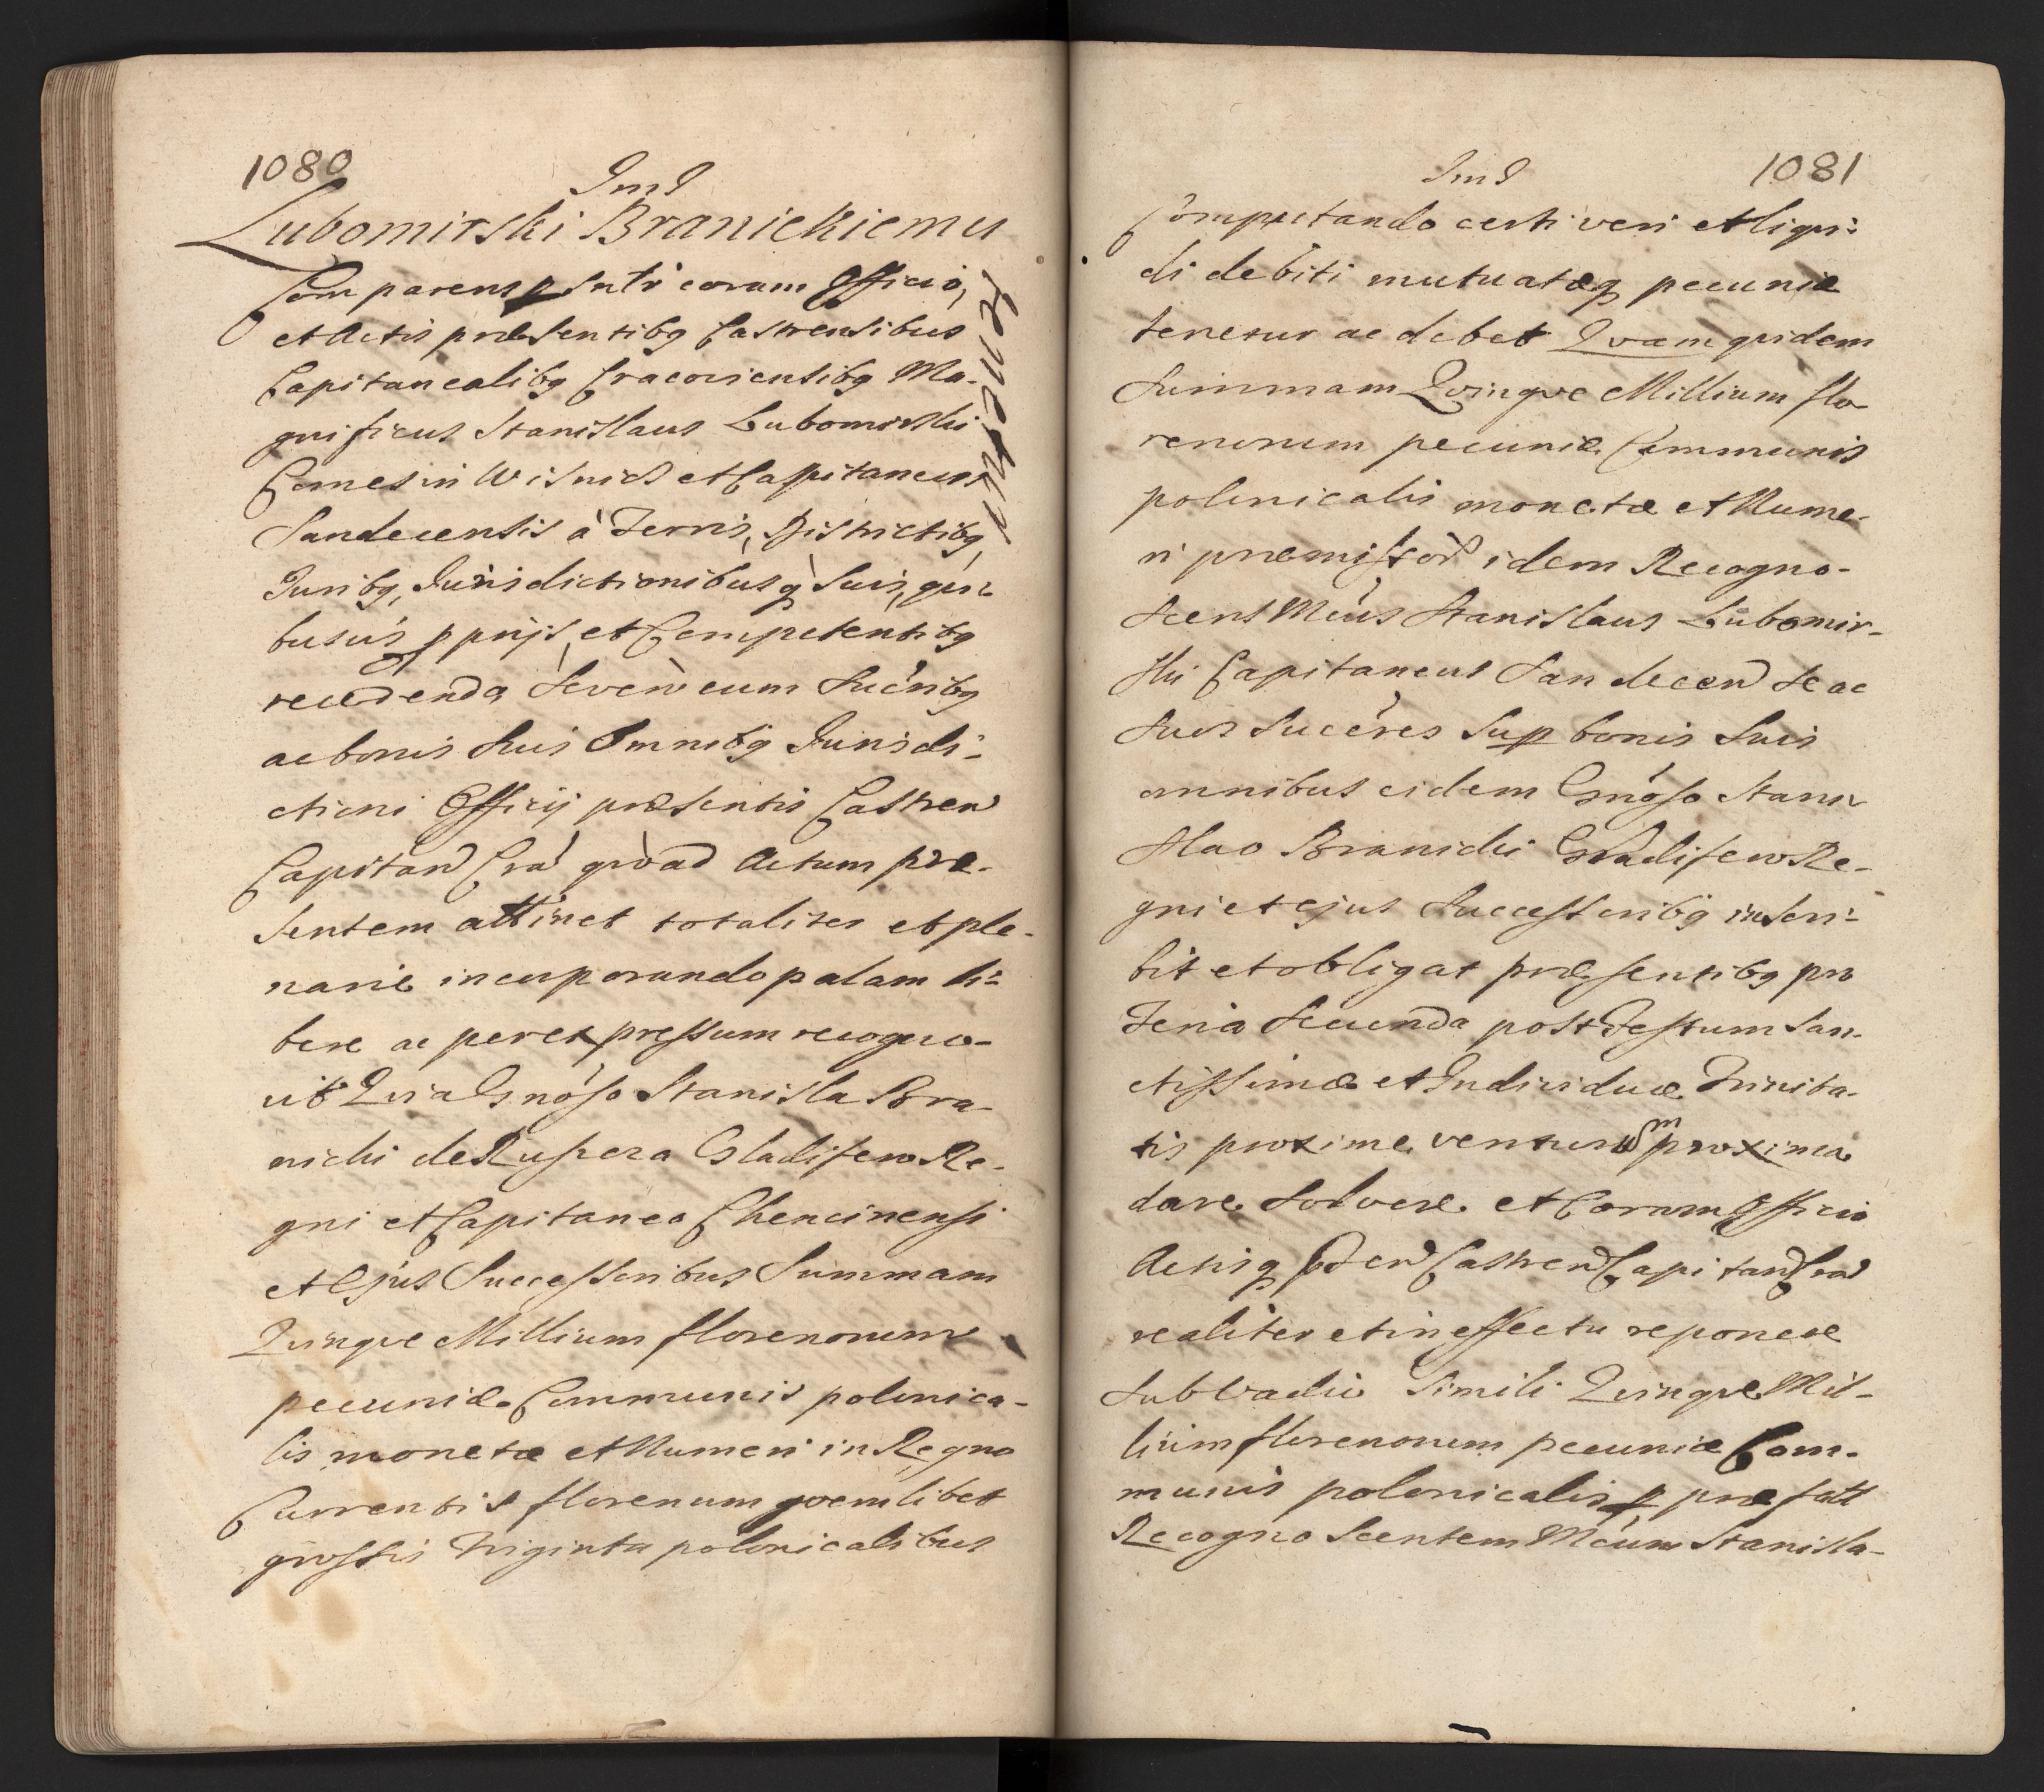 1080
Ind
Lubomirski Branickiemu
Comparens psntr coram Officio,
et Actis præsentibq Castrensibus
Capitanealibq Cracoviensibq Ma-
gnificus Stanislaus Lubomirski
Comes in Wisnicz et Capitaneus
Sandecensis à Terris, Districtibq,
Juribq, Jurisdictionibusq Suis, qui-
busuis pprijs, et Competentibq
recedendo Seque cum Sucribq
ac bonis Suis Omnibq Jurisdi-
ctioni Officij præsentis Castren
Capitan Cra quoad Actum præ-
sentem attinet totaliter et ple-
narie incorporando palam li-
bere ac per expressum recogno-
uit Quia Gnoso Stanisla Bra-
nicki de Ruscza Gladifero Re-
gni et Capitaneo Chencinensi
et Ejus Successoribus Summam
Quinque Millium florenorum
pecuniæ Communis polonica-
lis monetæ et Numeri in Regno
Currentis florenum quemlibet
grossis triginta polonicalibus
Ind
1081
Computando certi veri et liqui-
di debiti mutuatæq pecuniæ
tenetur ac debet Quam quidem
Summam Quinque Millium flo-
renorum pecuniæ Communis
polonicalis monetæ et Nume-
ri præmissor idem Recogno-
scens Mcus Stanislaus Lubomir-
ski Capitaneus Sandecen se ac
Suos Succres Sup bonis Suis
omnibus eidem Gnoso Stani-
slao Branicki Gladifero Re-
gni et ejus Successoribq inscri-
bit et obligat præsentibq pro
Feria Secunda post Festum San-
ctissimæ et Individuæ Trinita-
tis proxime venturum proxima
dare Solvere et Coram Officio
Actisq Castren Capitan Cra
realiter et in effectu reponere
Sub Vadio Simili Quinque Mil-
lium florenorum pecuniæ Com-
munis polonicalis p præfatt
Recognoscentem Mcum Stanisla-